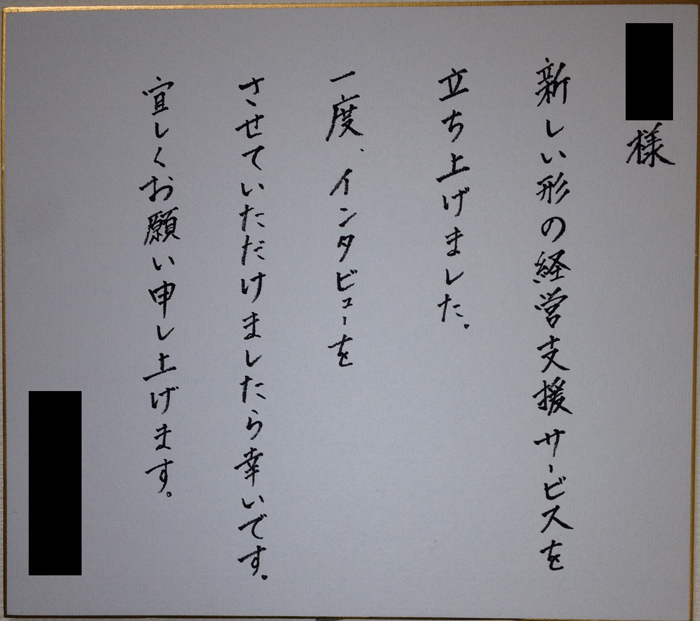 様
新しい形の経営支援サービスを
立ち上げました。
一度、インタビューを
させていただけましたら幸いです。
宜しくお願い申し上げます。